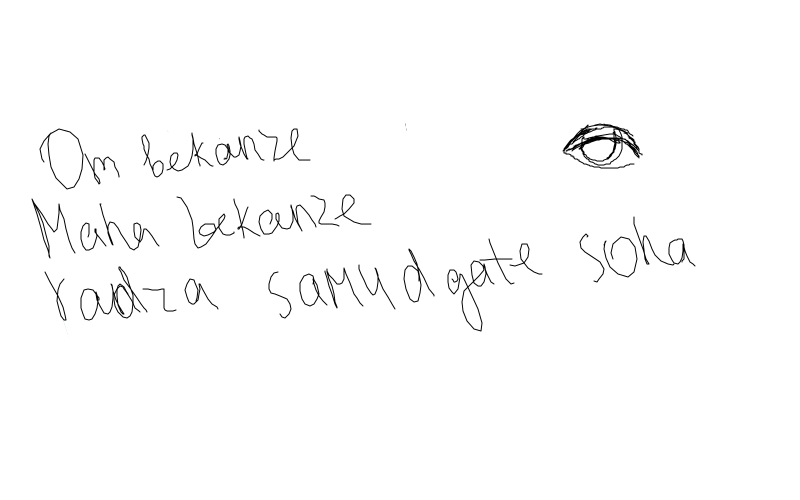 Om bekanze
Maha bekanze
radza samudgate soha